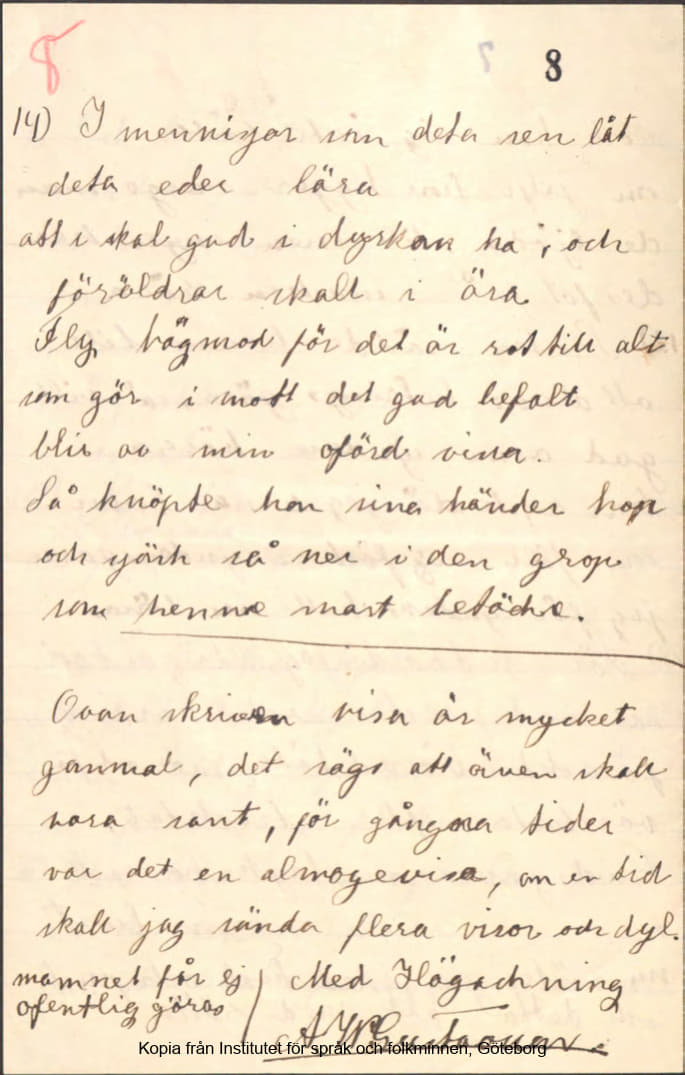 8 7 8
14) I mennisjor som deta sen låt
deta eder lära
att i skal gud i dyrkan ha, och
föräldrar skall i ära
Fly högmod för det är rot till alt
som gör i mott det gud befalt
blir av min ofärd visa.
Så knöpte hon sina händer hop
och gick så ner i den grop
som henne snart betäckte.
Ovan skriven visa är mycket
gammal, det sägs att även skall
vara sant, för gångna tider
var det en almogevisa, om en tid
skall jag sända flera visor och dyl.
namnet får ej
ofentlig göras
Med Högachning
A W Gustavsson.
Kopia från Institutet för språk och folkminnen, Göteborg